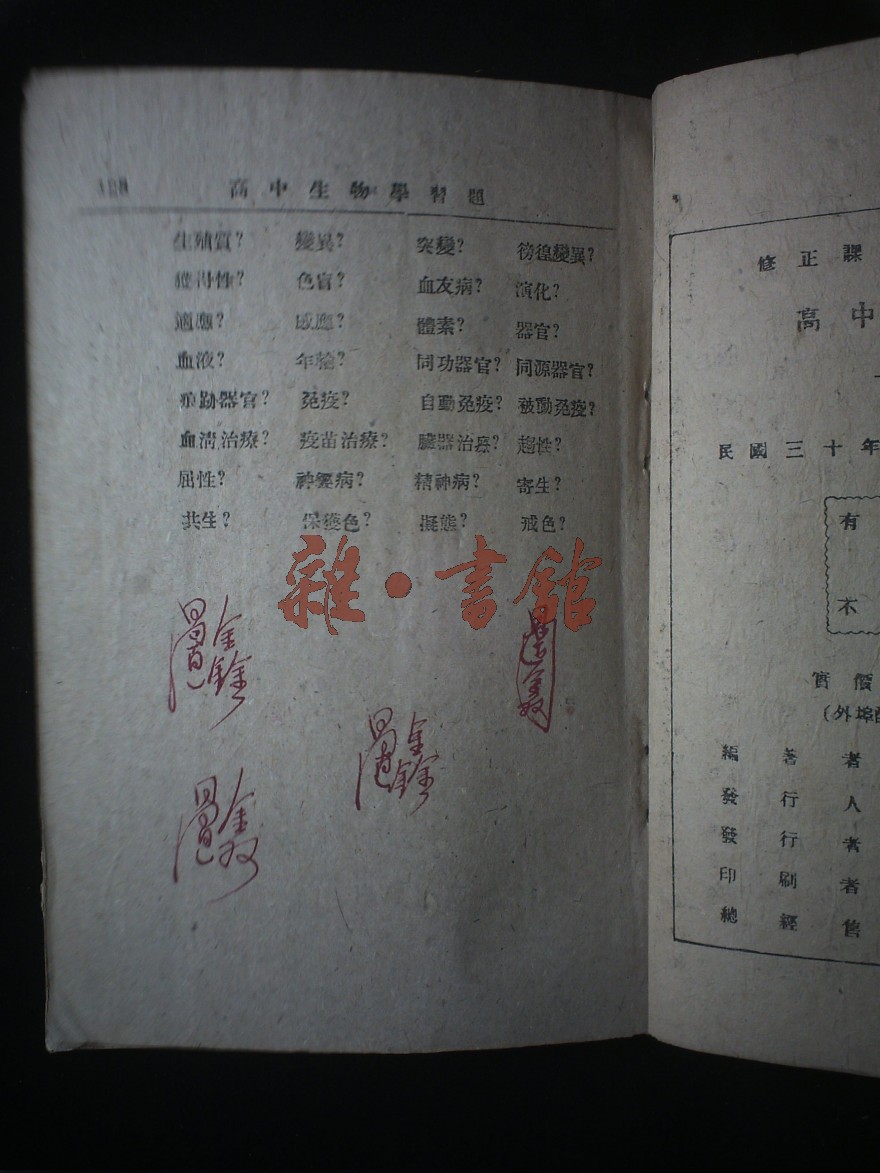 高中生物學習題
生殖質? 變異? 突變? 徬徨變異?
獲得性? 色盲? 血友病? 演化?
適應? 感應? 體素? 器官?
血液? 年輪? 同功器官? 同源器官?
痕跡器官? 免疫? 自動免疫? 被動免疫?
血清治療? 疫苗治療? 臟器治療? 趨性?
屈性? 神經病? 精神病? 寄生?
共生? 保護色? 擬態? 戒色?
雜·書館
修正課
高中
民國三十年
有
不
實價
(外埠
編著者
發行人
發行者
印刷者
總經售